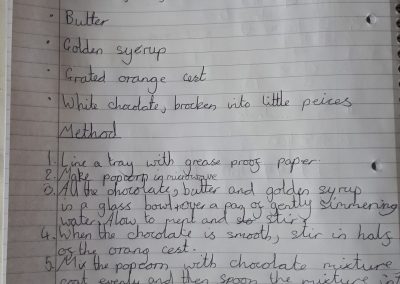 • Butter
• Golden syerup
• Grated orange cest
• White chocolate, brocken into little peices
Method
1. Line a tray with grease proof paper.
2. Make popcorn in microwave
3. All the chocolate, butter and golden syrup
in a glass bowl over a pan of gently simmering
water, Alow to melt and stir.
4. When the chocolate is smooth, stir in half
of the orang cest.
5. Mix the popcorn with chocolate mixture
coat evenly and then spoon the mixture